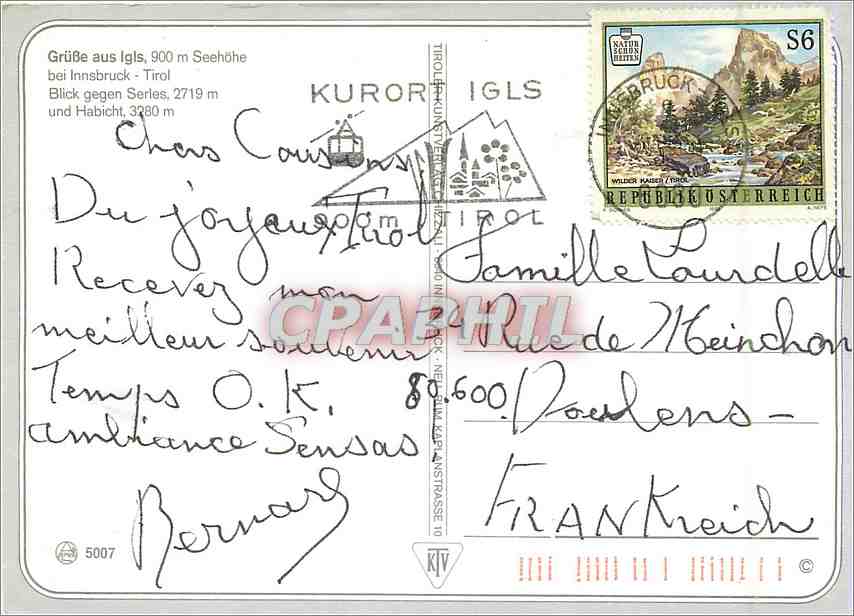 Grüße aus Igls, 900 m Seehöhe
bei Innsbruck - Tirol
Blick gegen Serles, 2719 m
und Habicht, 3280 m
KURORT IGLS
900m TIROL
NATUR
SCHÖN
HEITEN
S6
INNSBRUCK
WILDER KAISER / TIROL
REPUBLIK ÖSTERREICH
Chers Cousins,
Du joyeux Tirol
Recevez mon
meilleur souvenir
Temps O.K.
ambiance Sensas!
Bernard
Famille Lourdelle
34 Rue de Menchon
80.600 Doulens -
FRANKreich
TIROLER KUNSTVERLAG
INNSBRUCK · NEURUM, KAPLANSTRASSE 10
5007
KTV
©
CPAPHIL